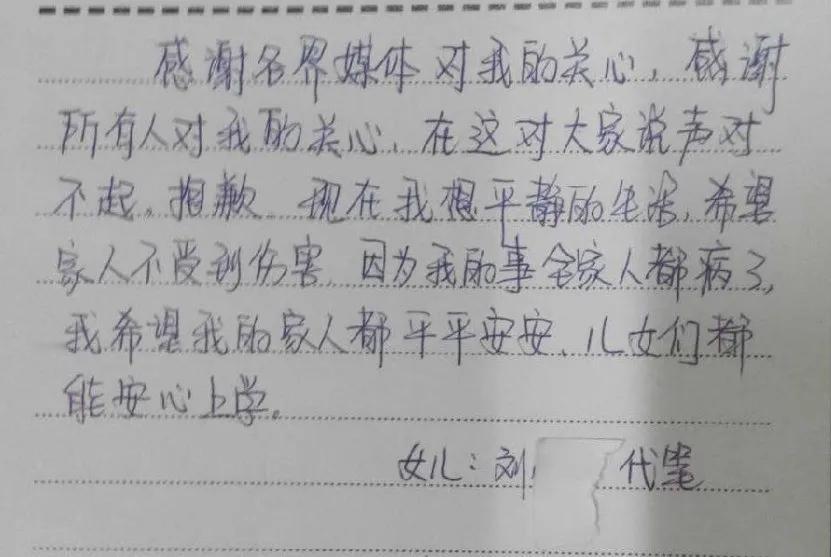 感谢各界媒体对我的关心，感谢
所有人对我的关心，在这对大家说声对
不起，抱歉 现在我想平静的生活，希望
家人不受到伤害，因为我的事全家人都病了，
我希望我的家人都平平安安、儿女们都
能安心上学。
女儿：刘 代笔